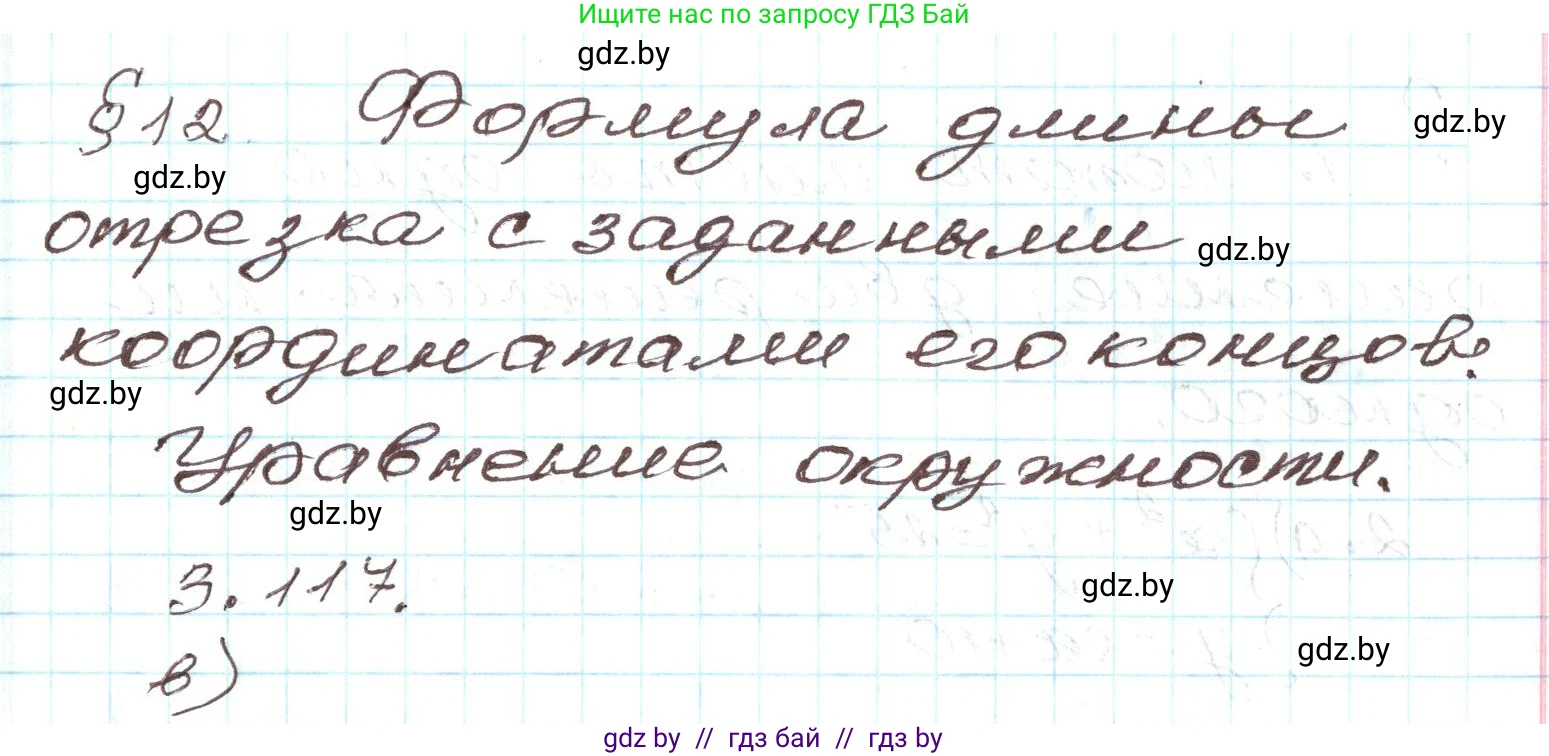 Ищите нас по запросу ГДЗ Бай
gdz.by
§12. Формула длины
gdz.by
gdz.by
отрезка с заданными
gdz.by
координатами его концов.
gdz.by
Уравнение окружности.
gdz.by
3.117.
gdz.by
gdz.by
в)
gdz.by // гдз бай // гдз by